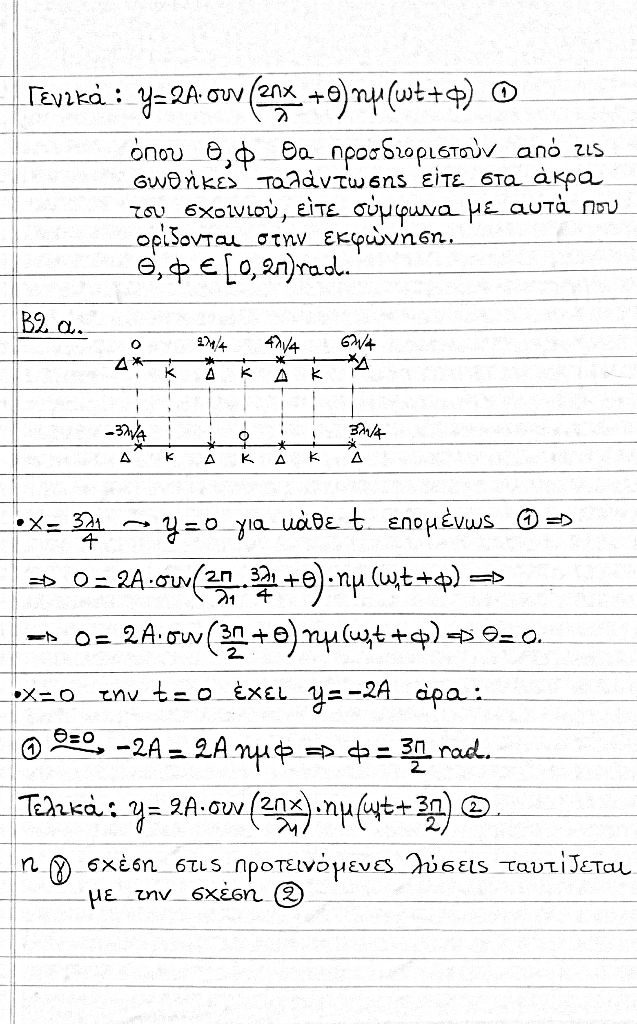 Γενικά: y=2A·συν(2πx/λ +θ)ημ(ωt+φ) ①
όπου θ,φ θα προσδιοριστούν από τις
συνθήκες ταλάντωσης είτε στα άκρα
του σχοινιού, είτε σύμφωνα με αυτά που
ορίζονται στην εκφώνηση.
θ,φ ∈ [0,2π)rad.
Β2 α.
0 2λ1/4 4λ1/4 6λ1/4
Δ Κ Δ Κ Δ Κ Δ
-3λ1/4 0 3λ1/4
Δ Κ Δ Κ Δ Κ Δ
• x= 3λ1/4 → y=0 για κάθε t επομένως ① ⇒
⇒ 0=2A·συν(2π/λ1 · 3λ1/4 +θ)·ημ(ω1t+φ) ⇒
⇒ 0= 2A·συν(3π/2 +θ)ημ(ω1t+φ) ⇒ θ=0.
• x=0 την t=0 έχει y=-2A άρα:
① θ=0 → -2A= 2A ημφ ⇒ φ= 3π/2 rad.
Τελικά: y=2A·συν(2πx/λ1)·ημ(ω1t+ 3π/2) ②.
η γ σχέση στις προτεινόμενες λύσεις ταυτίζεται
με την σχέση ②